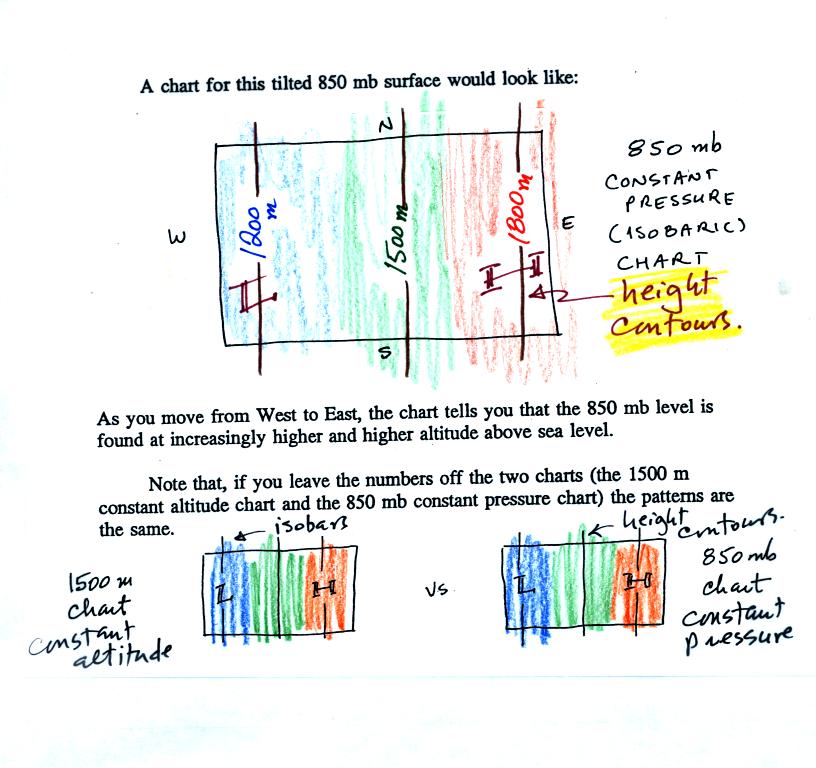 A chart for this tilted 850 mb surface would look like:
N
W
1200 m
1500 m
1800 m
E
L
H
S
850 mb
CONSTANT
PRESSURE
(ISOBARIC)
CHART
height
contours.
As you move from West to East, the chart tells you that the 850 mb level is
found at increasingly higher and higher altitude above sea level.
Note that, if you leave the numbers off the two charts (the 1500 m
constant altitude chart and the 850 mb constant pressure chart) the patterns are
the same.
isobars
1500 m
chart
constant
altitude
L
H
vs
height contours.
L
H
850 mb
chart
constant
pressure